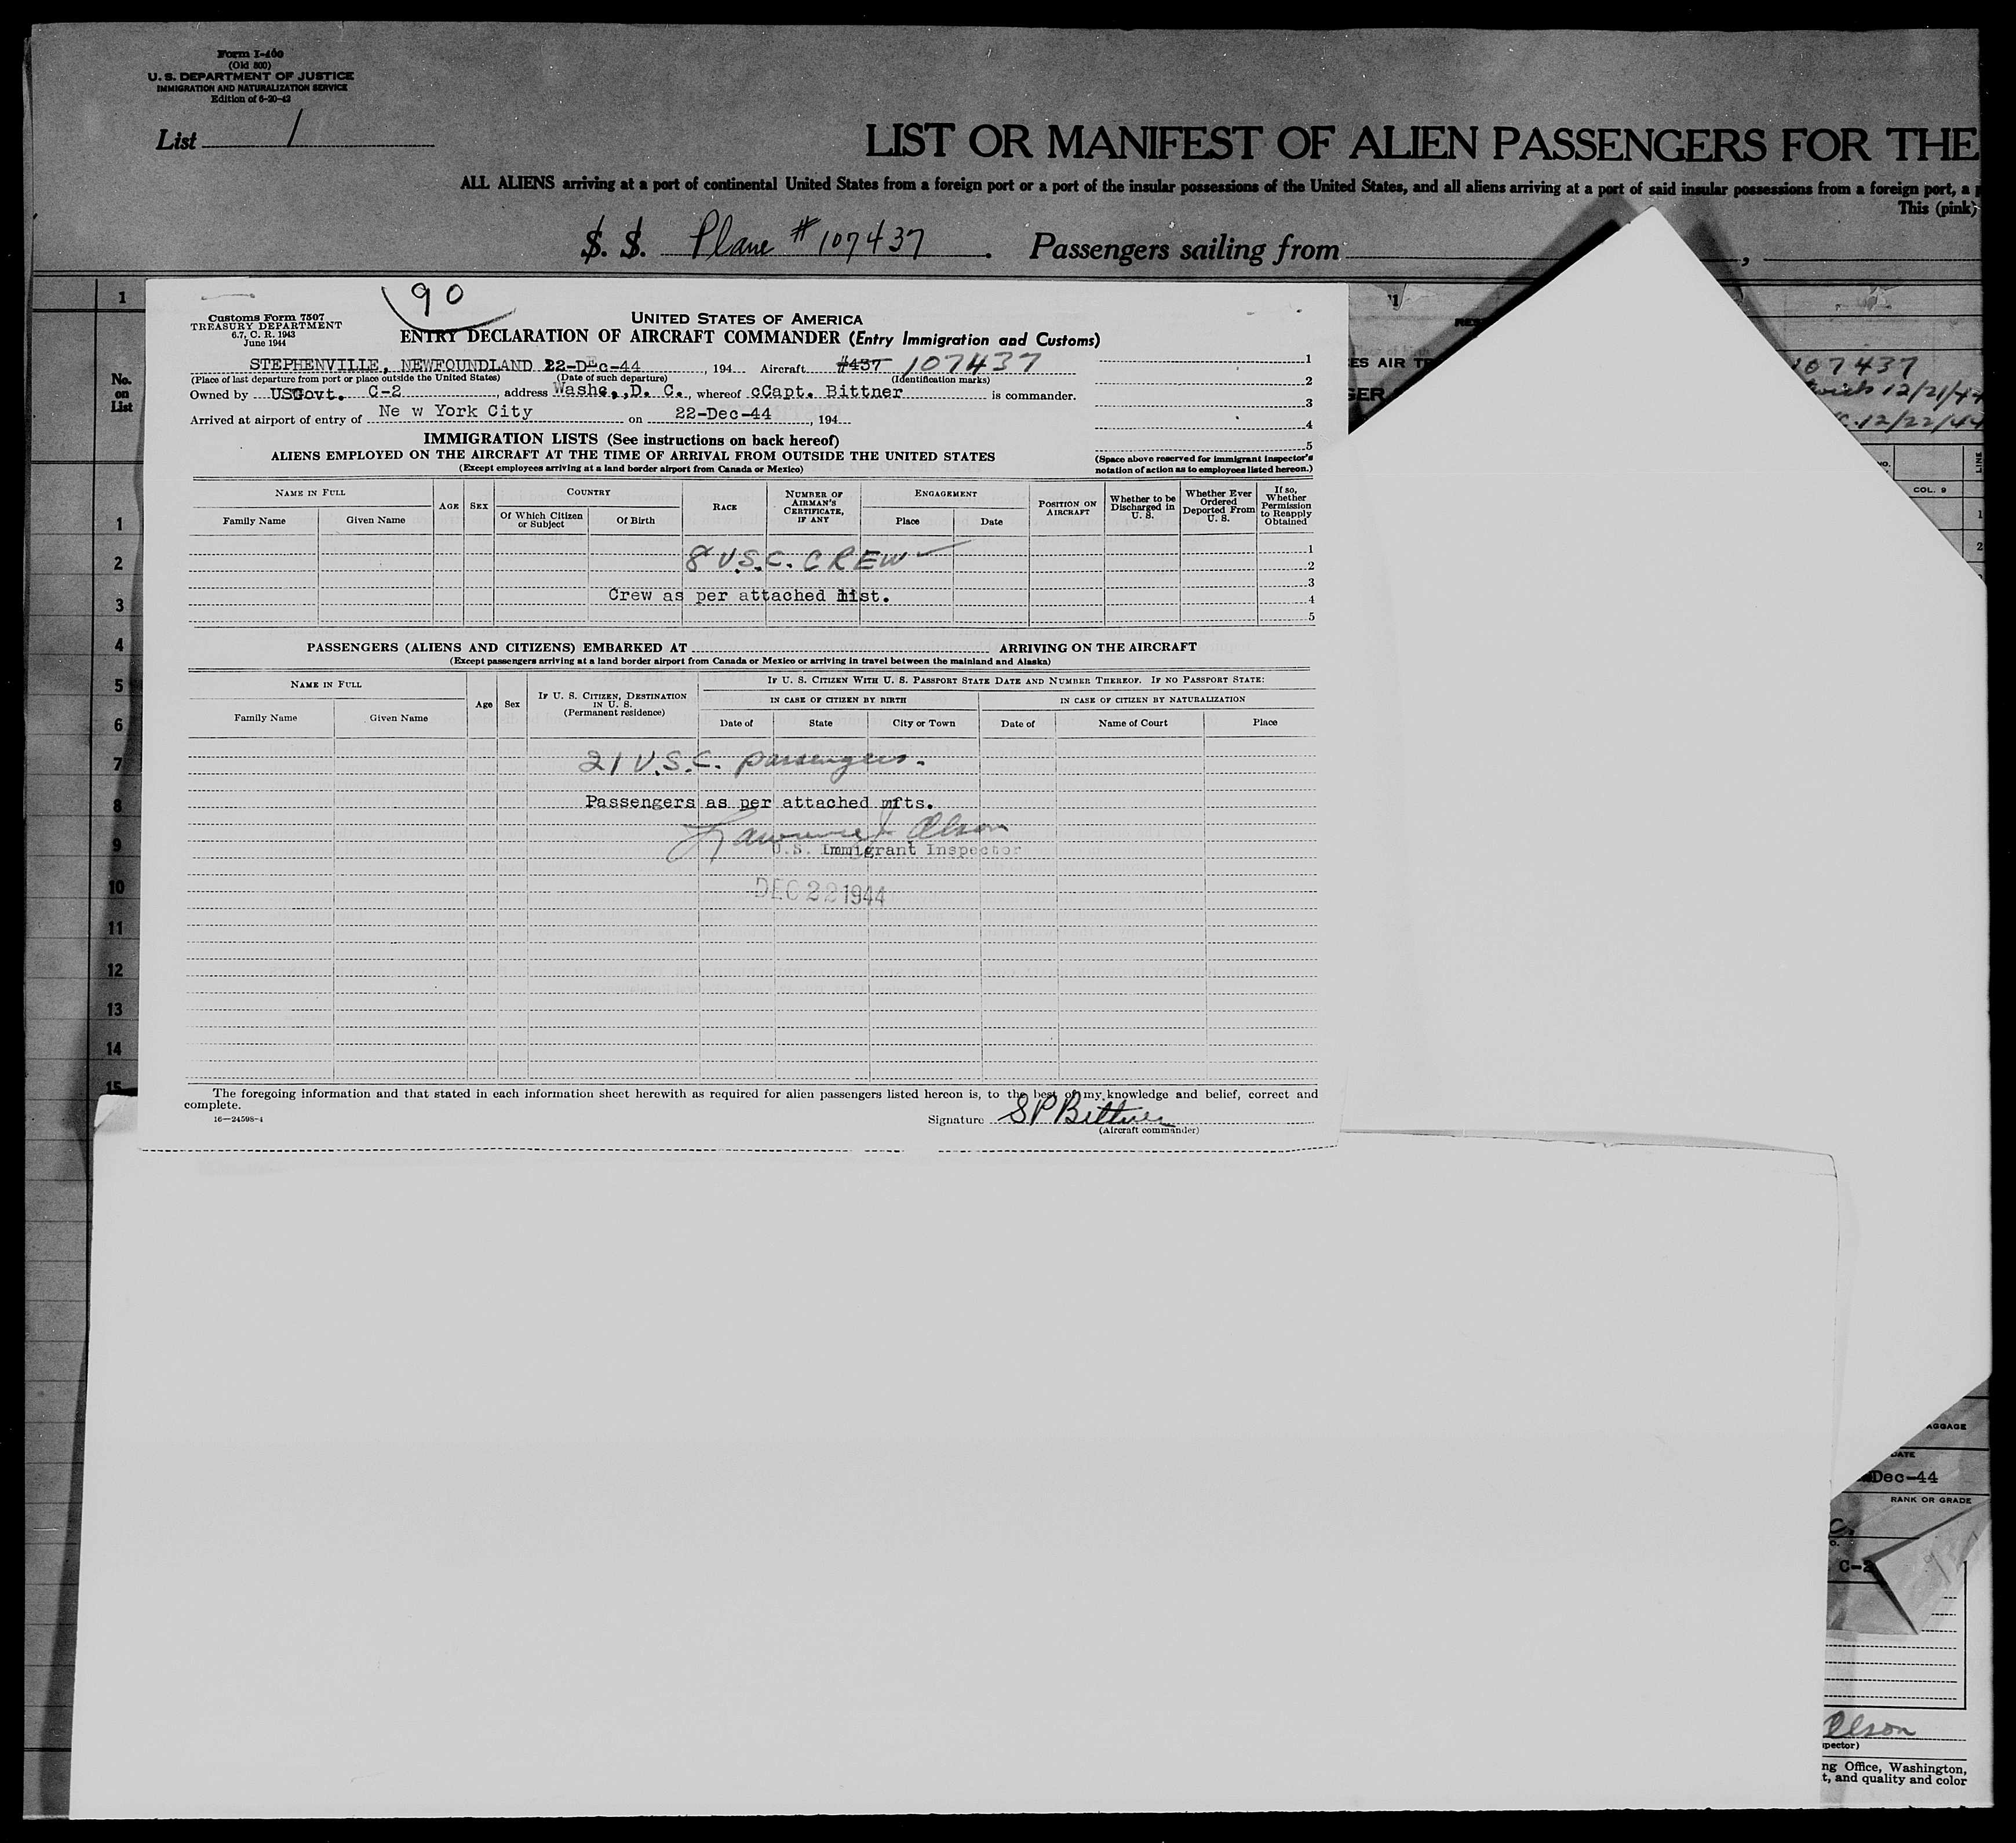 Form I-400
(Old 500)
U. S. DEPARTMENT OF JUSTICE
IMMIGRATION AND NATURALIZATION SERVICE
Edition of 6-20-42
List 1
LIST OR MANIFEST OF ALIEN PASSENGERS FOR THE
ALL ALIENS arriving at a port of continental United States from a foreign port or a port of the insular possessions of the United States, and all aliens arriving at a port of said insular possessions from a foreign port, a
This (pink)
S. S. Plane # 107437 . Passengers sailing from ,
1
No. on List
90
Customs Form 7507
TREASURY DEPARTMENT
6.7, C. R. 1943
June 1944
UNITED STATES OF AMERICA
ENTRY DECLARATION OF AIRCRAFT COMMANDER (Entry Immigration and Customs)
STEPHENVILLE, NEWFOUNDLAND 22-DEc-44 , 194 Aircraft #437 107437
(Place of last departure from port or place outside the United States) (Date of such departure) (Identification marks)
Owned by USGovt. C-2 , address Washe,,D. C., whereof cCapt. Bittner is commander.
Arrived at airport of entry of Ne w York City on 22-Dec-44 , 194
1
2
3
4
5
(Space above reserved for immigrant inspector's notation of action as to employees listed hereon.)
IMMIGRATION LISTS (See instructions on back hereof)
ALIENS EMPLOYED ON THE AIRCRAFT AT THE TIME OF ARRIVAL FROM OUTSIDE THE UNITED STATES
(Except employees arriving at a land border airport from Canada or Mexico)
NAME IN FULL AGE SEX COUNTRY RACE NUMBER OF AIRMAN'S CERTIFICATE, IF ANY ENGAGEMENT POSITION ON AIRCRAFT Whether to be Discharged in U. S. Whether Ever Ordered Deported From U. S. If so, Whether Permission to Reapply Obtained
Family Name Given Name Of Which Citizen or Subject Of Birth Place Date
1
8 U.S.C. CREW
2
3
Crew as per attached list.
4
5
PASSENGERS (ALIENS AND CITIZENS) EMBARKED AT ARRIVING ON THE AIRCRAFT
(Except passengers arriving at a land border airport from Canada or Mexico or arriving in travel between the mainland and Alaska)
NAME IN FULL Age Sex IF U. S. CITIZEN, DESTINATION IN U. S. (Permanent residence) IF U. S. CITIZEN WITH U. S. PASSPORT STATE DATE AND NUMBER THEREOF. IF NO PASSPORT STATE:
IN CASE OF CITIZEN BY BIRTH IN CASE OF CITIZEN BY NATURALIZATION
Family Name Given Name Date of State City or Town Date of Name of Court Place
21 U.S.C. passengers.
Passengers as per attached mfts.
Lawrence J. Olson
U.S. Immigrant Inspector
DEC 22 1944
The foregoing information and that stated in each information sheet herewith as required for alien passengers listed hereon is, to the best of my knowledge and belief, correct and
complete.
16—24598-4
Signature SPBittner
(Aircraft commander)
1
2
3
4
5
6
7
8
9
10
11
12
13
14
15
ES AIR TR
GER
107437
12/21/44
12/22/44
NO.
LINE
COL. 9
1
2
AGGAGE
DATE
Dec-44
RANK OR GRADE
C-2
Olson
pector)
ng Office, Washington,
t, and quality and color